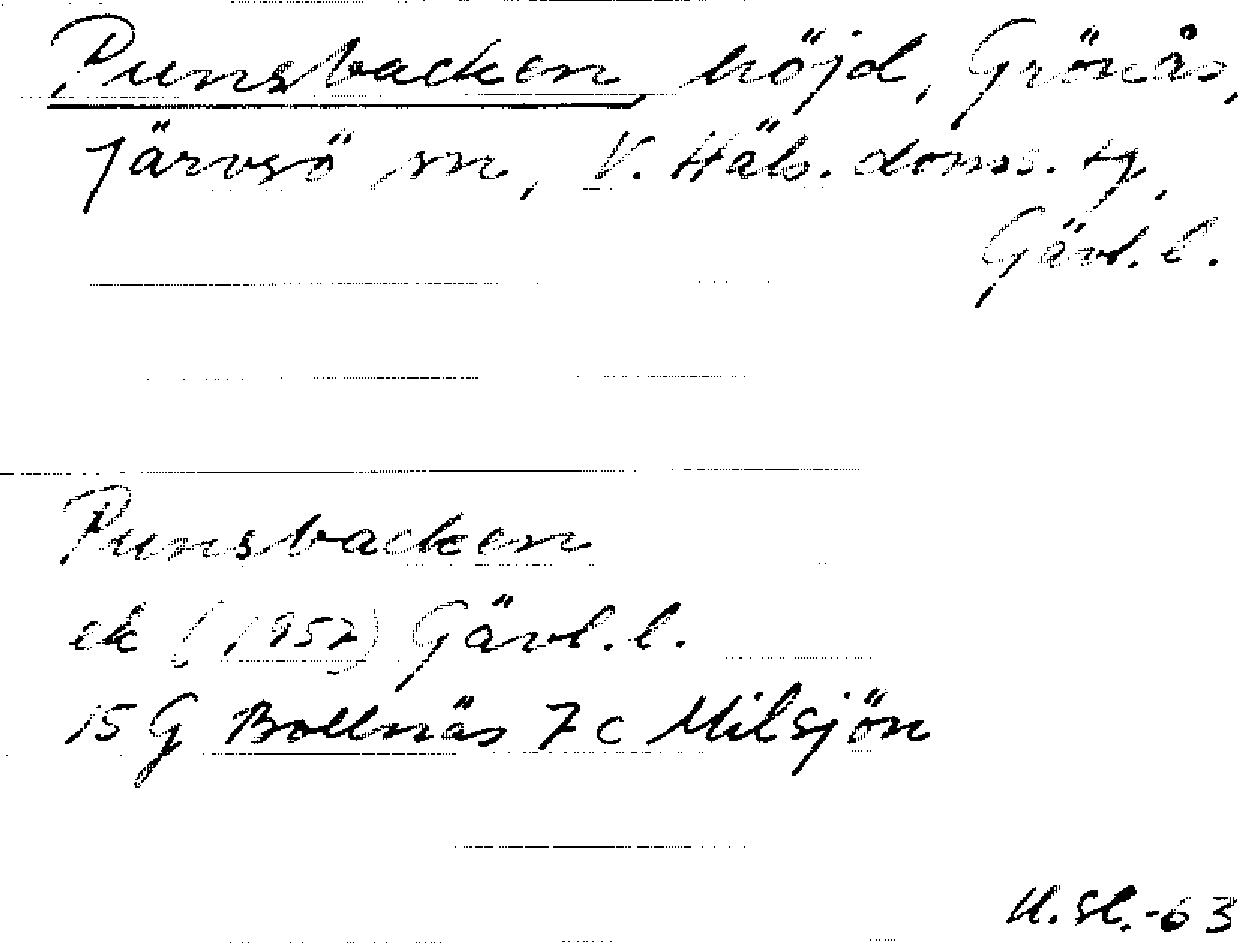 Punsbacken, höjd, Grönås,
Järvsö sn, V. Häls. doms. tg,
Gävl. l.
Punsbacken
ek (1957) Gävl. l.
15 G Bollnäs 7 c Milsjön
-63